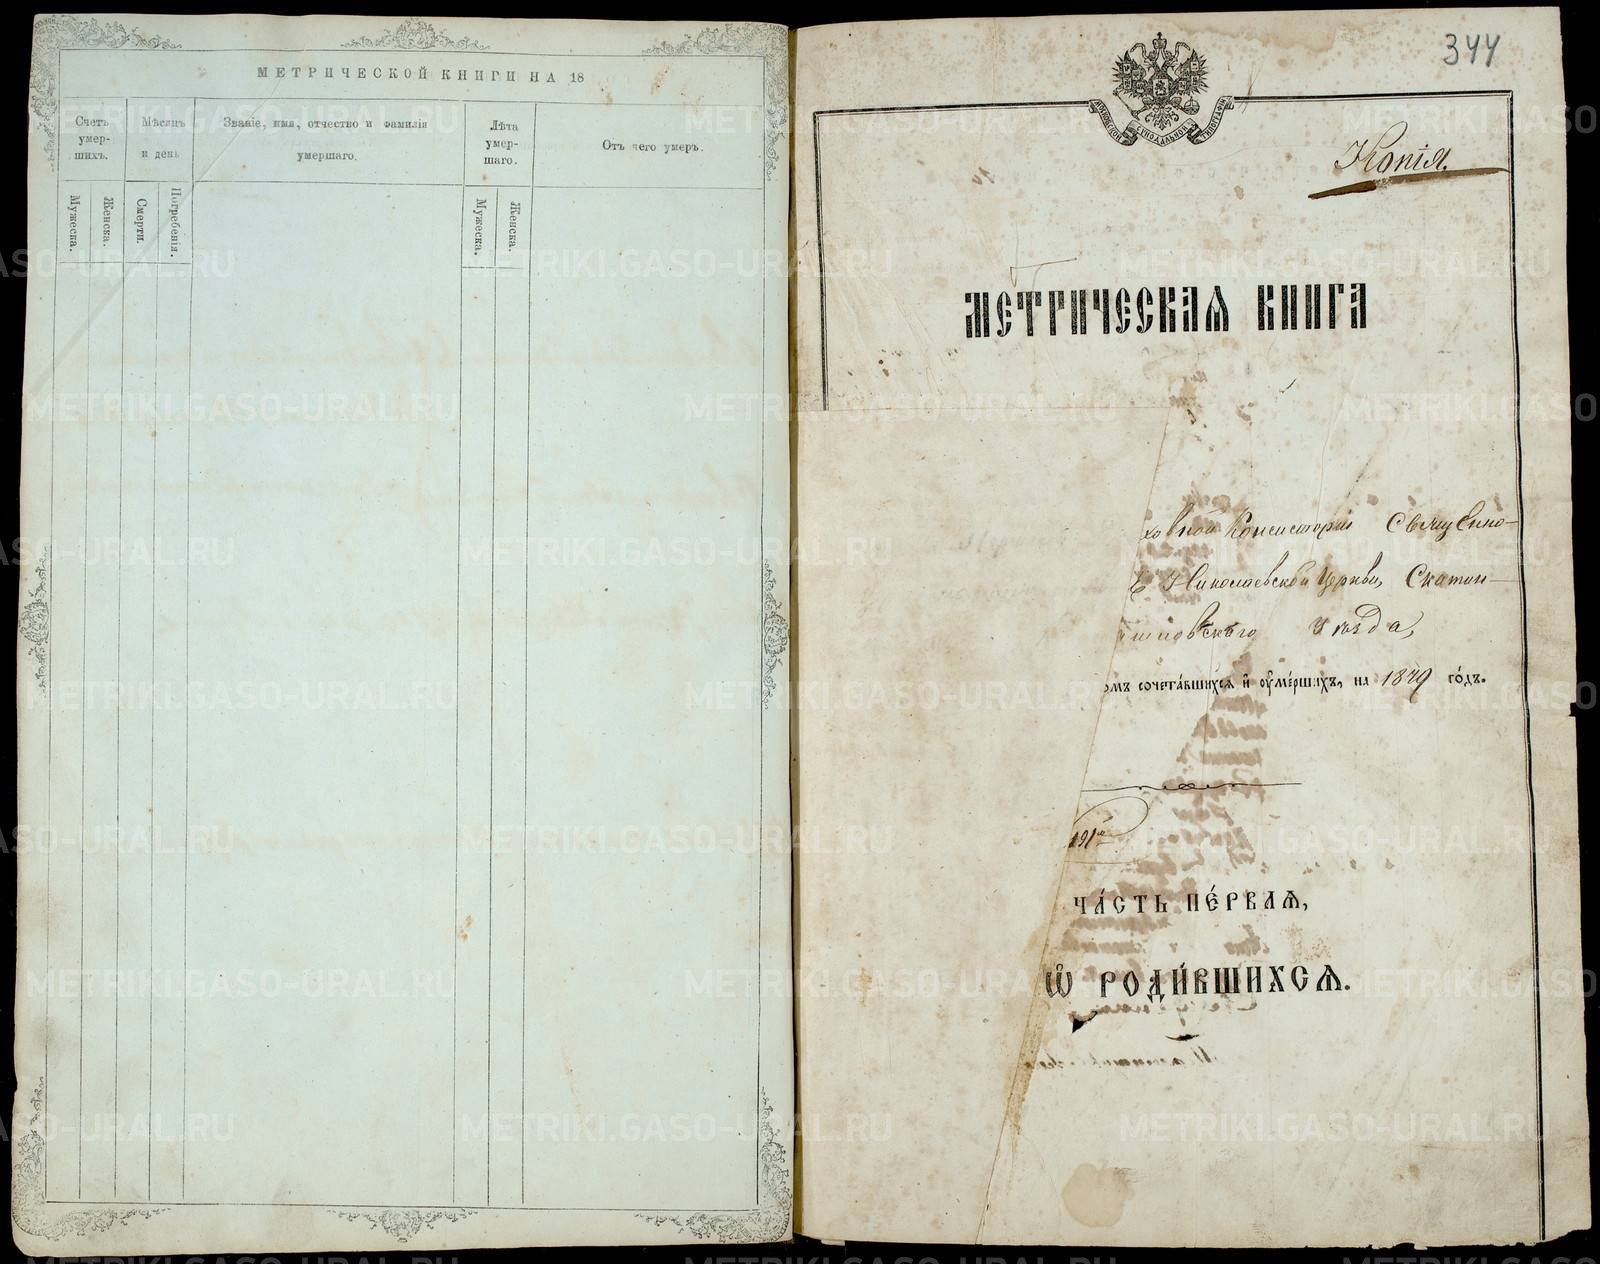 МЕТРИЧЕСКОЙ КНИГИ НА 18
Счетъ умер-
шихъ.
Мѣсяцъ
и день
Званіе, имя, отчество и фамилія
умершаго.
Лѣта
умер-
шаго.
Отъ чего умеръ.
Мужеска.
Женска.
Смерти.
Погребенія.
Мужеска.
Женска.
344
МОСКОВСКОЙ СѴНОДАЛЬНОЙ ТИПОГРАФІИ
Копія.
МЕТРИЧЕСКАѦ КНИГА
ховной Консисторіи Священно-
Николаевской Церкви, Скатин-
шловскаго Уѣзда,
омъ сочета́вшихсѧ и҆ ᲂу҆ме́ршихъ, на 1879 го́дъ.
ЧА́СТЬ ПЕ́РВАѦ,
Ѡ҆ РОДИ́ВШИХСѦ.
METRIKI.GASO-URAL.RU